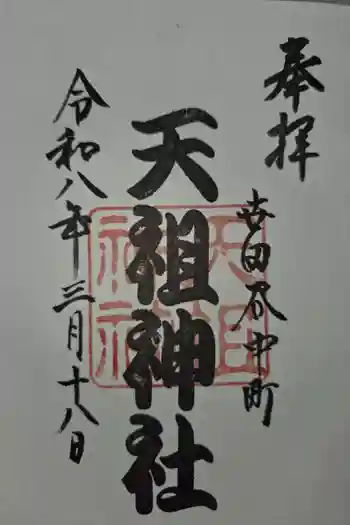 奉拝
世田谷中町
天祖神社
天祖神社
令和八年三月十八日